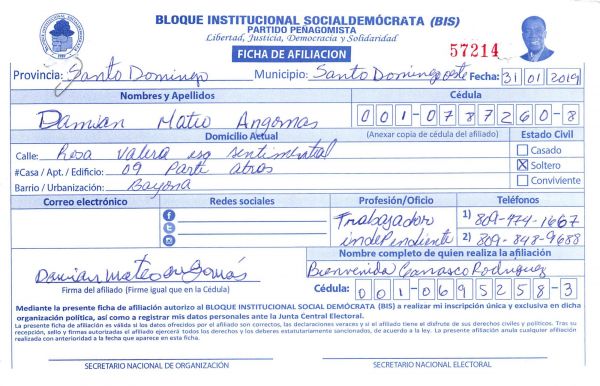 BLOQUE INSTITUCIONAL SOCIALDEMÓCRATA (BIS)
PARTIDO PEÑAGOMISTA
Libertad, Justicia, Democracia y Solidaridad
FICHA DE AFILIACION
57214
Provincia: Santo Domingo Municipio: Santo Domingo oeste Fecha: 31 01 2019
Nombres y Apellidos Cédula
Damian Mateo Angomas 001-0787260-8
Domicilio Actual (Anexar copia de cédula del afiliado) Estado Civil
Calle: Rosa Valera esq sentimental Casado
#Casa / Apt. / Edificio: 09 Parte atras X Soltero
Barrio / Urbanización: Bayona Conviviente
Correo electrónico Redes sociales Profesión/Oficio Teléfonos
Trabajador 1) 809-974-1667
independiente 2) 809-848-9688
Nombre completo de quien realiza la afiliación
Damian Mateo Bienvenida Carrasco Rodriguez
Firma del afiliado (Firme igual que en la Cédula) Cédula: 001-0695258-3
Mediante la presente ficha de afiliación autorizo al BLOQUE INSTITUCIONAL SOCIAL DEMÓCRATA (BIS) a realizar mi inscripción única y exclusiva en dicha
organización política, así como a registrar mis datos personales ante la Junta Central Electoral.
La presente ficha de afiliación es válida si los datos ofrecidos por el afiliado son correctos, las declaraciones veraces y si el afiliado tiene el disfrute de sus derechos civiles y políticos. Tras su
recepción, sello y firmas autorizadas el afiliado ejercerá todos los derechos y los deberes estatutariamente sancionados, de acuerdo a la ley. La presente afiliación anula cualquier afiliación
realizada con anterioridad a la fecha que aparece en esta ficha.
SECRETARIO NACIONAL DE ORGANIZACIÓN SECRETARIO NACIONAL ELECTORAL